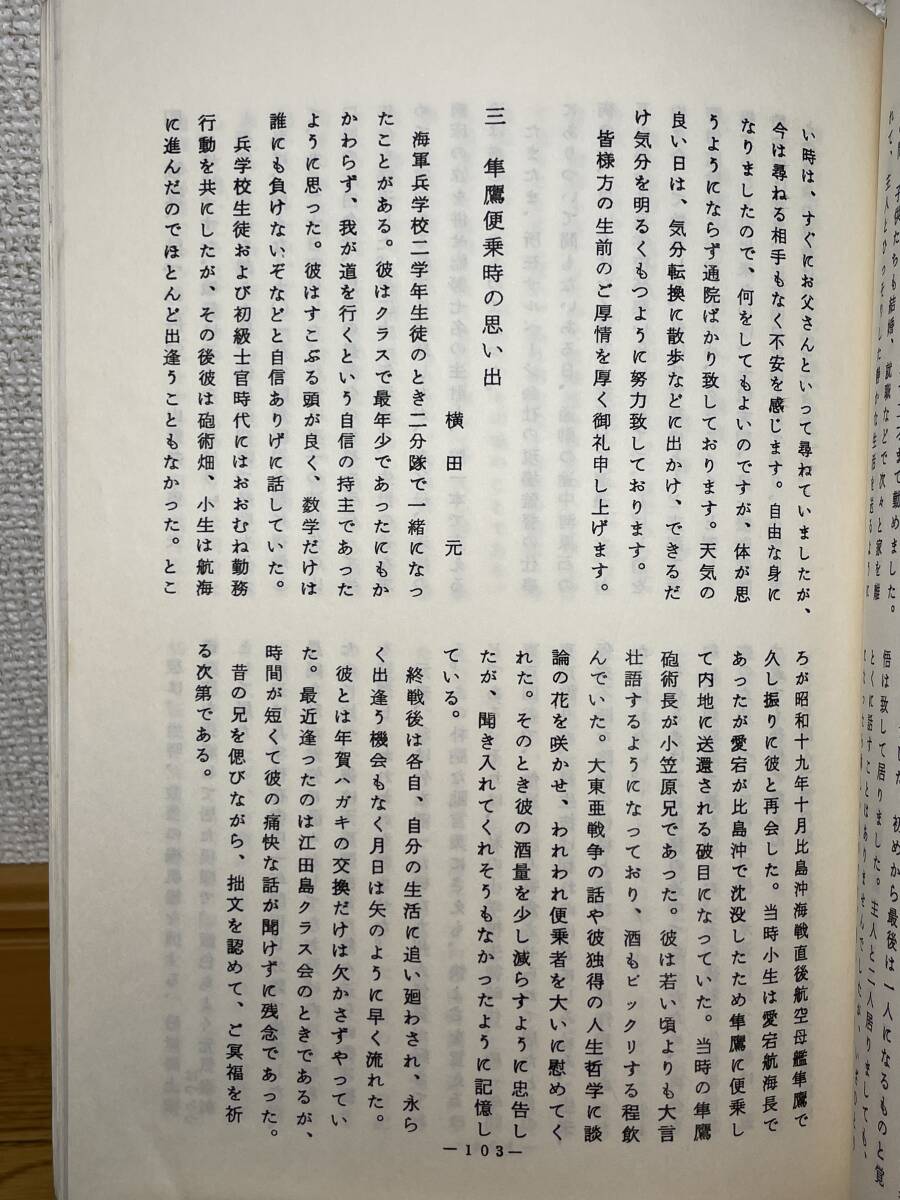 い時は、すぐにお父さんといって尋ねていましたが、
今は尋ねる相手もなく不安を感じます。自由な身に
なりましたので、何をしてもよいのですが、体が思
うようにならず通院ばかり致しております。天気の
良い日は、気分転換に散歩などに出かけ、できるだ
け気分を明るくもつように努力致しております。
皆様方の生前のご厚情を厚く御礼申し上げます。
三　隼鷹便乗時の思い出
横田　元
海軍兵学校二学年生徒のとき二分隊で一緒になっ
たことがある。彼はクラスで最年少であったにもか
かわらず、我が道を行くという自信の持主であった
ように思った。彼はすこぶる頭が良く、数学だけは
誰にも負けないぞなどと自信ありげに話していた。
兵学校生徒および初級士官時代にはおおむね勤務
行動を共にしたが、その後彼は砲術畑、小生は航海
に進んだのでほとんど出逢うこともなかった。とこ
ろが昭和十九年十月比島沖海戦直後航空母艦隼鷹で
久し振りに彼と再会した。当時小生は愛宕航海長で
あったが愛宕が比島沖で沈没したため隼鷹に便乗し
て内地に送還される破目になっていた。当時の隼鷹
砲術長が小笠原兄であった。彼は若い頃よりも大言
壮語するようになっており、酒もビックリする程飲
んでいた。大東亜戦争の話や彼独得の人生哲学に談
論の花を咲かせ、われわれ便乗者を大いに慰めてく
れた。そのとき彼の酒量を少し減らすように忠告し
たが、聞き入れてくれそうもなかったように記憶し
ている。
終戦後は各自、自分の生活に追い廻わされ、永ら
く出逢う機会もなく月日は矢のように早く流れた。
彼とは年賀ハガキの交換だけは欠かさずやってい
た。最近逢ったのは江田島クラス会のときであるが、
時間が短くて彼の痛快な話が聞けずに残念であった。
昔の兄を偲びながら、拙文を認めて、ご冥福を祈
る次第である。
—103—